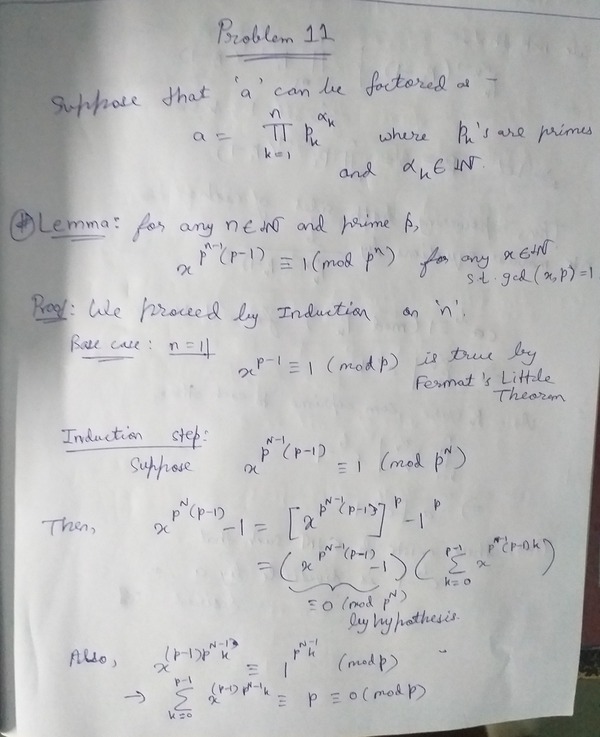 Problem 11
Suppose that 'a' can be factored as -
a = ∏_{k=1}^{n} p_k^{α_k} where p_k's are primes
and α_k ∈ ℕ.
# Lemma: for any n ∈ ℕ and prime p,
x^{p^{n-1}(p-1)} ≡ 1 (mod p^n) for any x ∈ ℕ
s.t. gcd(x, p) = 1
Proof: We proceed by Induction on 'n'.
Base case: n = 1
x^{p-1} ≡ 1 (mod p) is true by
Fermat's Little
Theorem
Induction step:
Suppose x^{p^{N-1}(p-1)} ≡ 1 (mod p^N)
Then, x^{p^N(p-1)} - 1 = [x^{p^{N-1}(p-1)}]^p - 1^p
= (x^{p^{N-1}(p-1)} - 1) (∑_{k=0}^{p-1} x^{p^{N-1}(p-1)k})
≡ 0 (mod p^N)
by hypothesis.
Also, x^{(p-1)p^{N-1}k} ≡ 1^{p^{N-1}k} (mod p)
→ ∑_{k=0}^{p-1} x^{(p-1)p^{N-1}k} ≡ p ≡ 0 (mod p)